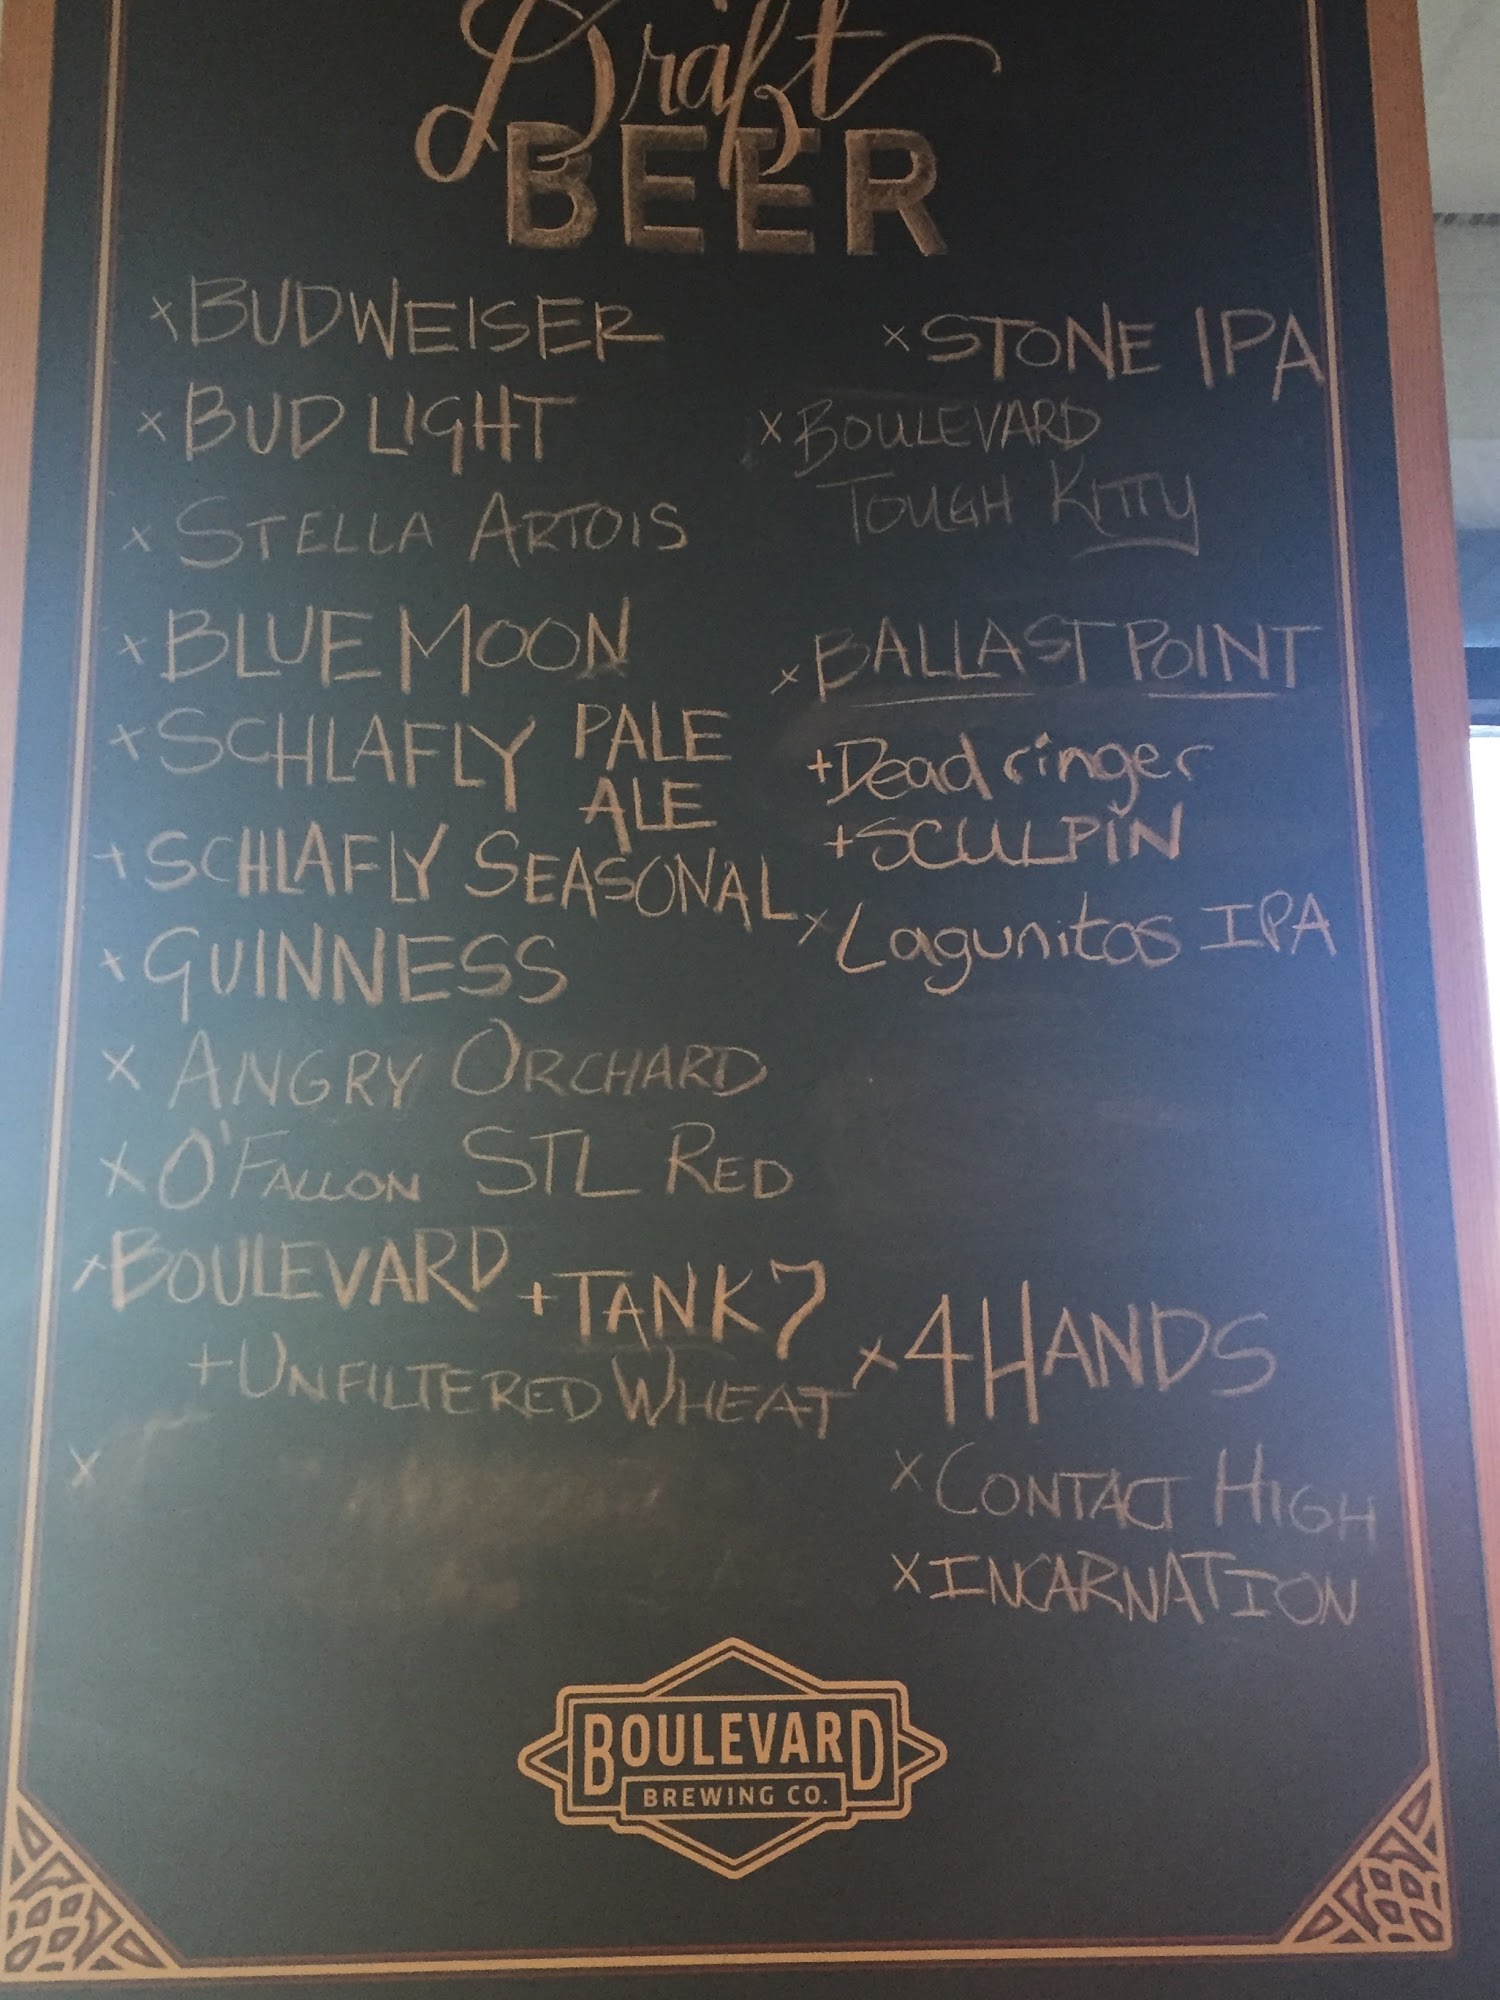 Draft
BEER
x BUDWEISER
x BUD LIGHT
x STELLA ARTOIS
x BLUE MOON
x SCHLAFLY PALE
ALE
x SCHLAFLY SEASONAL
x GUINNESS
x ANGRY ORCHARD
x O'FALLON STL RED
x BOULEVARD + TANK 7
+ UNFILTERED WHEAT
x
x STONE IPA
x BOULEVARD
TOUGH KITTY
x BALLAST POINT
+ Dead ringer
+ SCULPIN
x Lagunitas IPA
x 4HANDS
x CONTACT HIGH
x INCARNATION
BOULEVARD
BREWING CO.